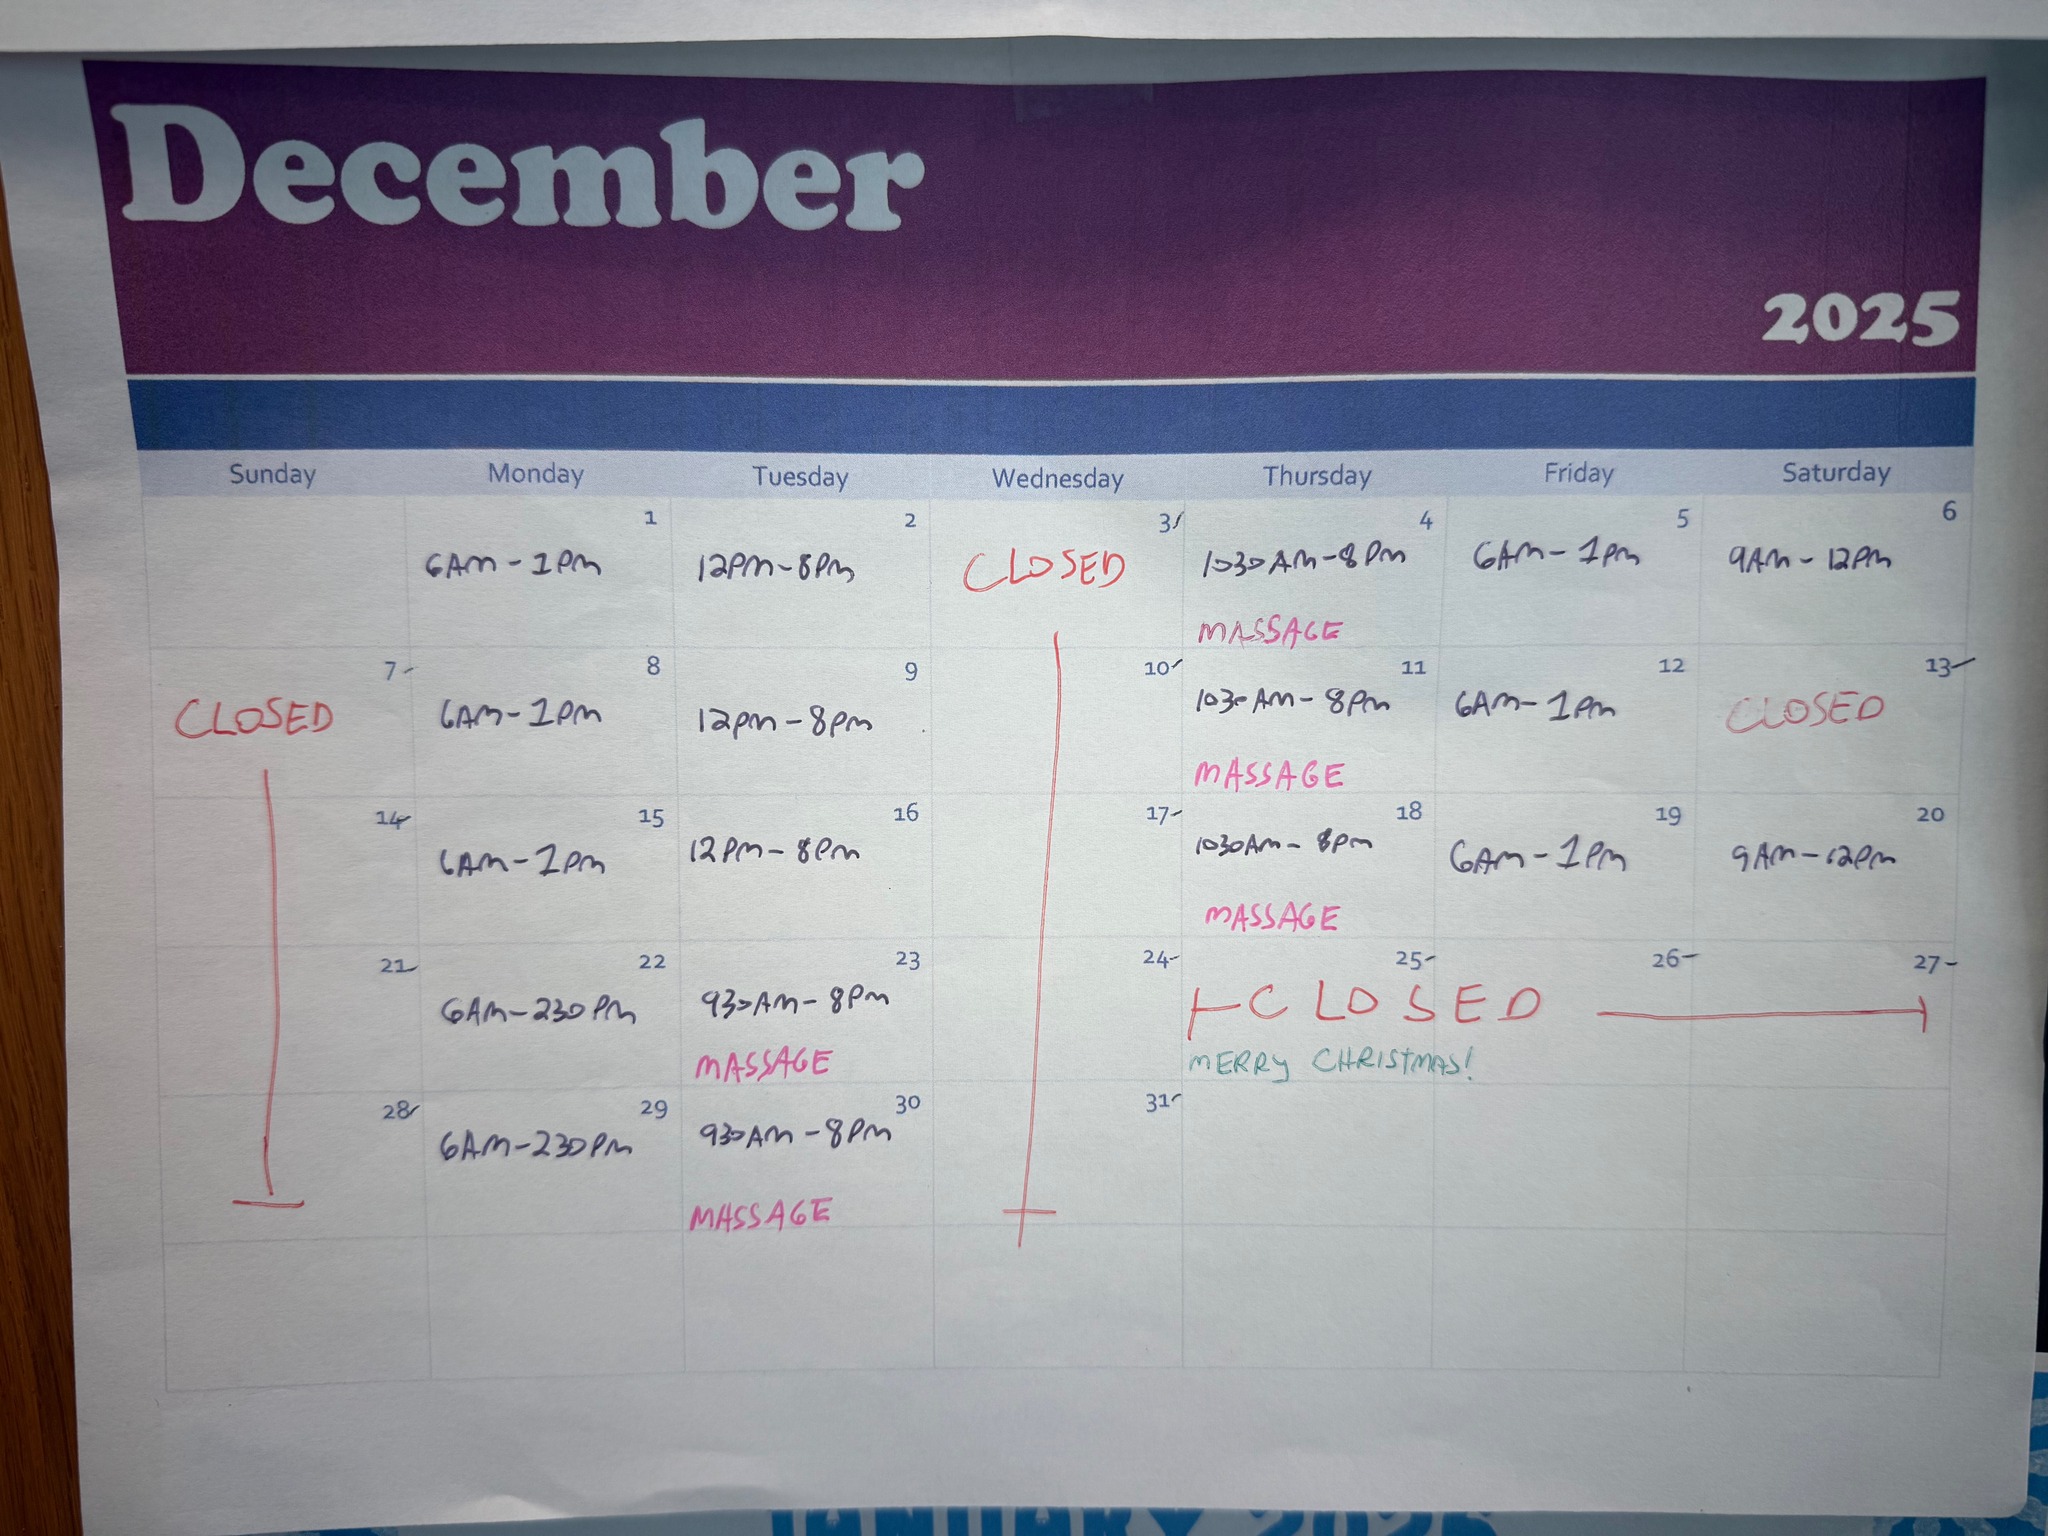 December
2025
Sunday Monday Tuesday Wednesday Thursday Friday Saturday
1 2 3 4 5 6
6AM-1PM 12PM-8PM CLOSED 1030AM-8PM 6AM-1PM 9AM-12PM
MASSAGE
7 8 9 10 11 12 13
CLOSED 6AM-1PM 12PM-8PM 1030AM-8PM 6AM-1PM CLOSED
MASSAGE
14 15 16 17 18 19 20
6AM-1PM 12PM-8PM 1030AM-8PM 6AM-1PM 9AM-12PM
MASSAGE
21 22 23 24 25 26 27
6AM-230PM 930AM-8PM CLOSED
MASSAGE MERRY CHRISTMAS!
28 29 30 31
6AM-230PM 930AM-8PM
MASSAGE